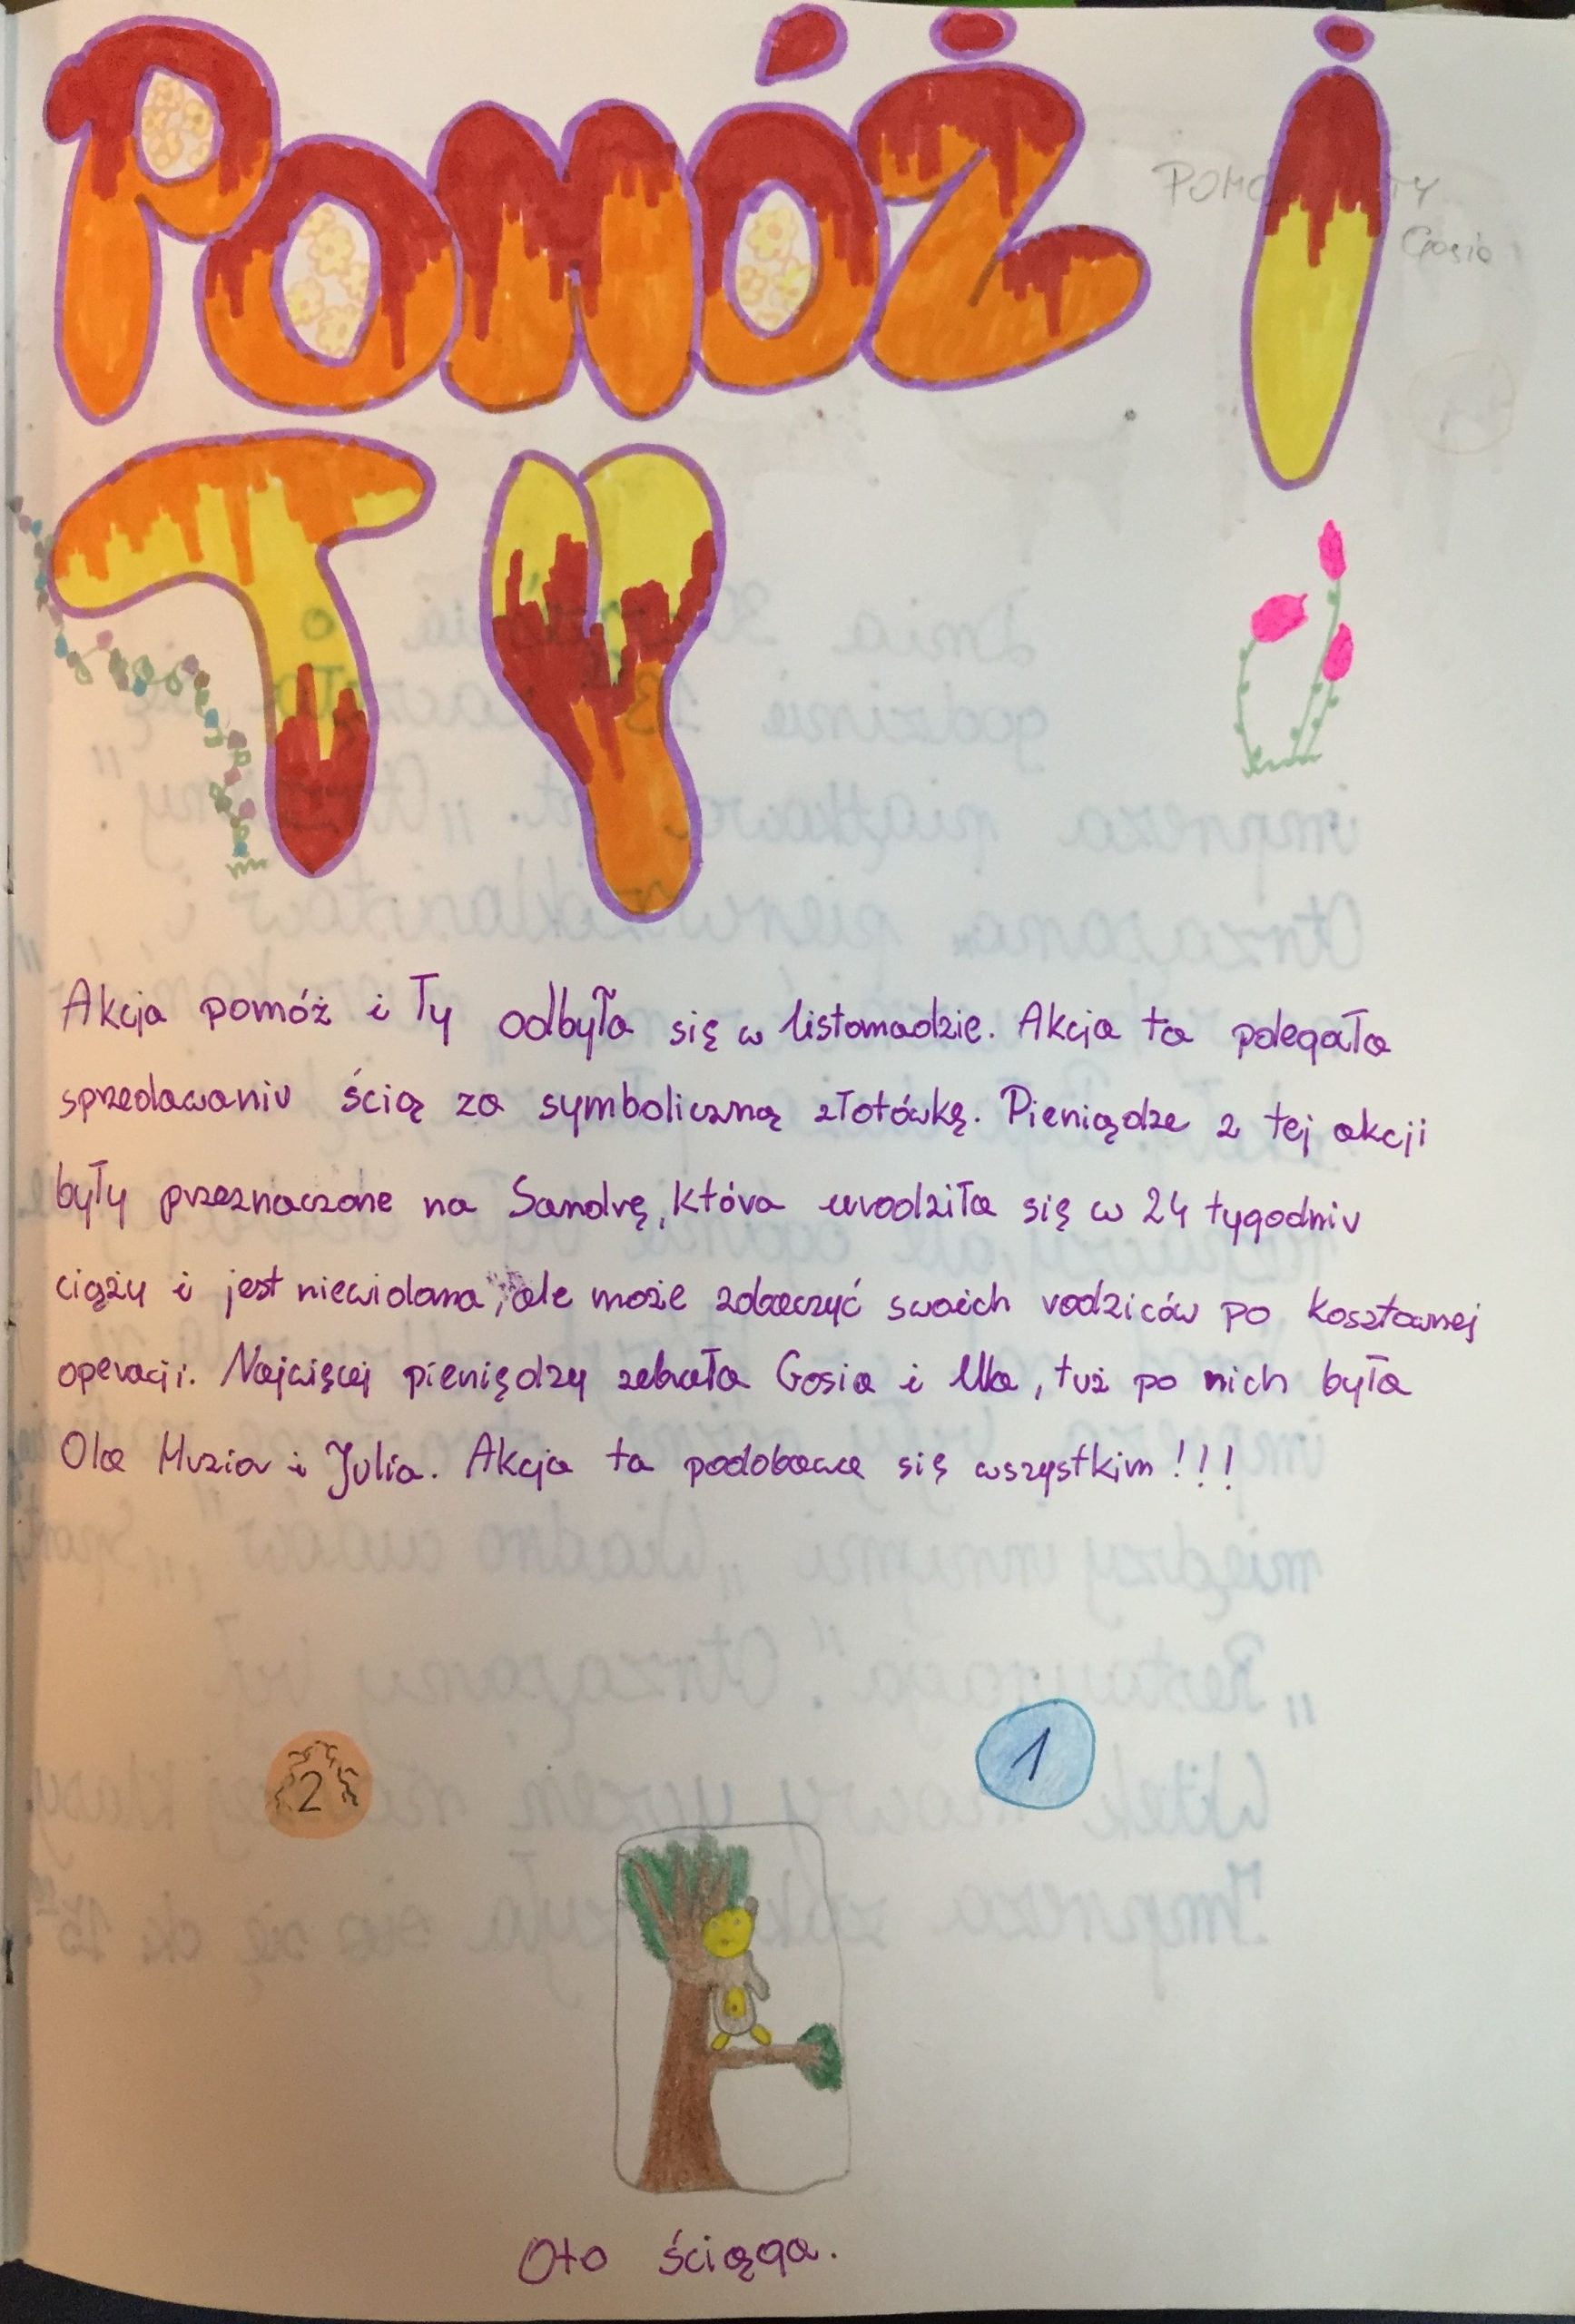 POMÓŻ I
TY
Gosia
Akcja pomóż i Ty odbyła się w listomadzie. Akcja ta polegała
sprzedawaniu ścią za symboliczną złotówkę. Pieniądze z tej akcji
były przeznaczone na Sandrę, która urodziła się w 24 tygodniu
ciąży i jest niewidoma, ale może zobaczyć swoich rodziców po kosztownej
operacji. Najwięcej pieniędzy zebrała Gosia i Ula, tuż po nich była
Ola Muzia i Julia. Akcja ta podobawa się wszystkim!!!
2
1
Oto ściąga.